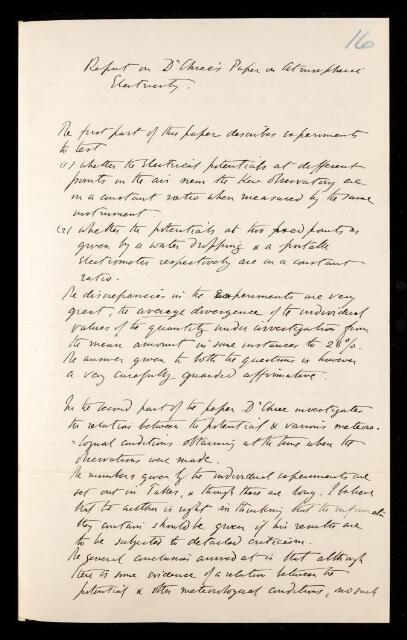 16
Report on Dr Chree's Paper on Atmospheric
Electricity.
The first part of this paper describes experiments
to test
(1) whether the Electrical potentials at different
points in the air near the Kew Observatory are
in a constant ratio when measured by the same
instrument
(2) whether the potentials at two fixed points as
given by a water dropping & a portable
Electrometer respectively are in a constant
ratio.
The discrepancies in the Experiments are very
great, the average divergence of the individual
values of the quantity under investigation from
the mean amount in some instances to 28%.
The answer given to both the questions is however
a very carefully guarded affirmative.
In the second part of the paper Dr Chree investigates
the relations between the potential & various meteoro-
=logical conditions obtaining at the time when the
observations were made.
The numbers given by the individual experiments are
set out in Tables, & though these are long, I believe
that the author is right in thinking that the information
they contain should be given if his results are
to be subjected to detailed criticism.
The general conclusion arrived at is that although
there is some evidence of a relation between the
potential & other meteorological conditions, no such